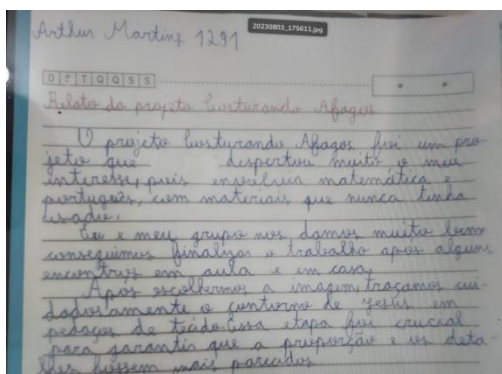 Arthur Martins 1291
20230803_175611.jpg
D S T Q Q S S
Relato do projeto Costurando Afagos
O projeto Costurando Afagos foi um pro-
jeto que despertou muito o meu
interesse, pois envolvia matemática e
português, com materiais que nunca tinha
usado.
Eu e meu grupo nos damos muito bem
conseguimos finalizar o trabalho após alguns
encontros em aula e em casa.
Após escolhermos a imagem, traçamos cui-
dadosamente o contorno de Jesus em
pedaços de tecido. Essa etapa foi crucial
para garantir que a proporção e os deta-
lhes fossem mais parecidos